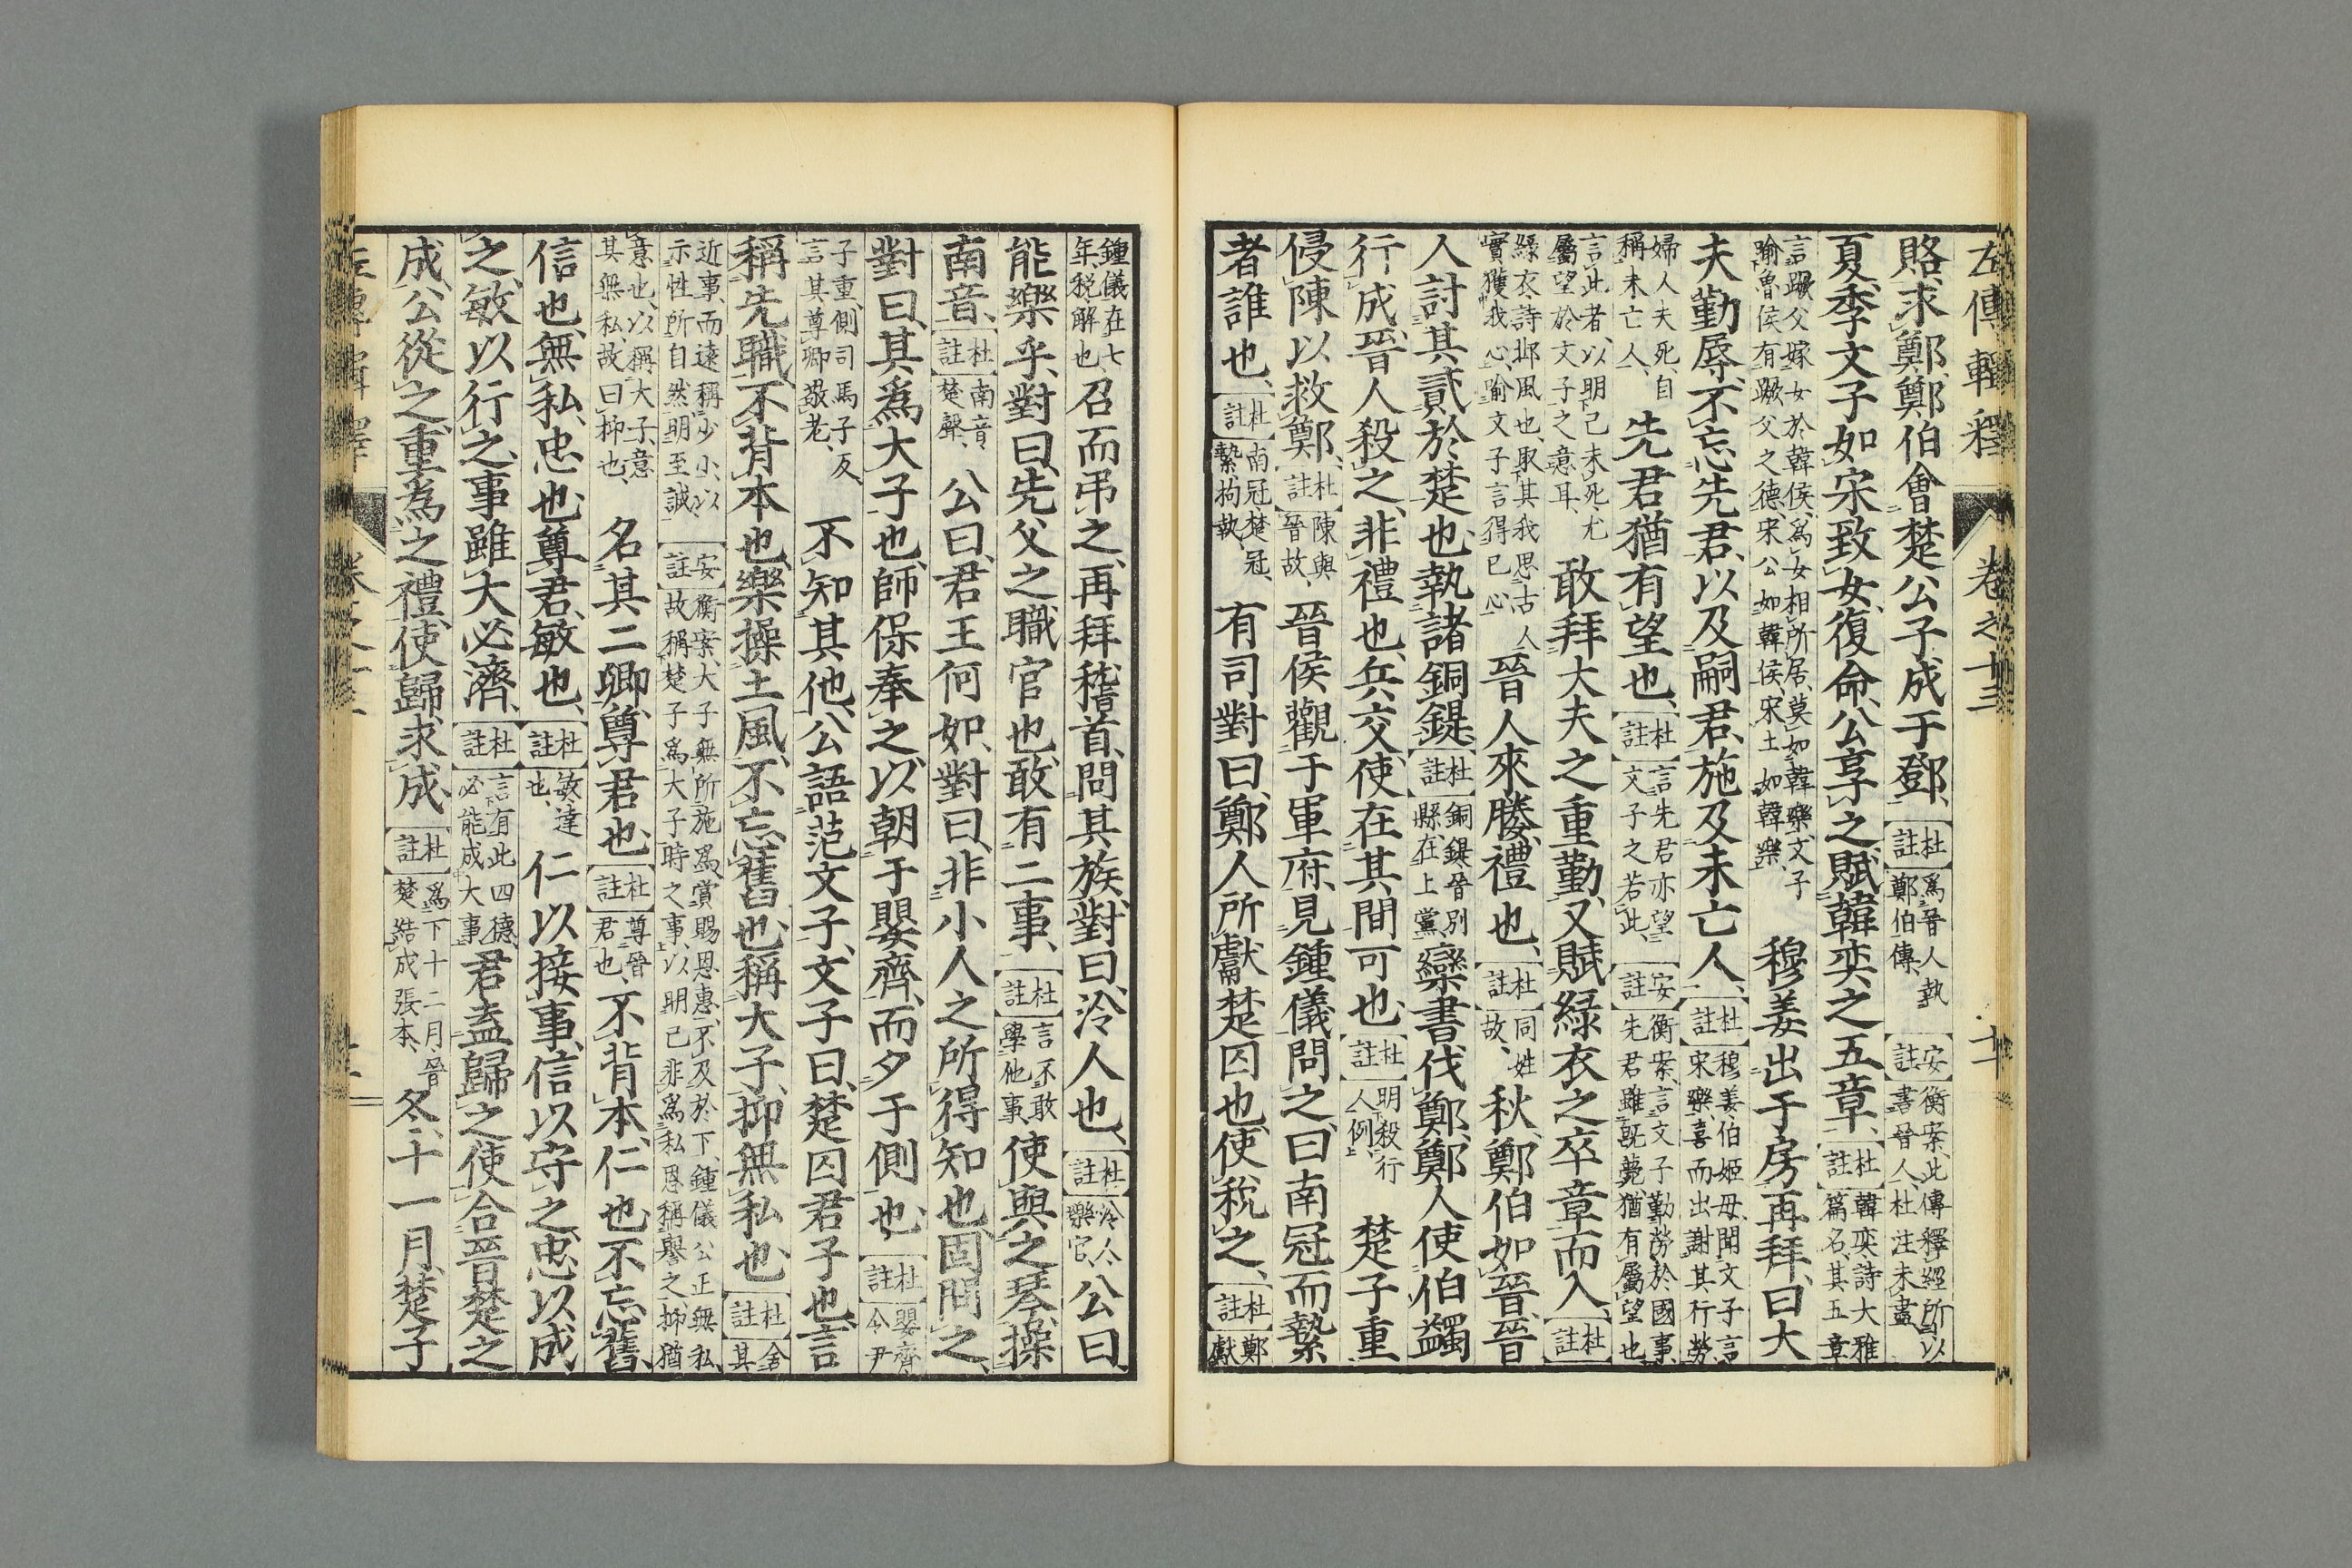 左傳輯釋 卷之十三 十一
賂求鄭鄭伯會楚公子成于鄧杜註爲晉人執鄭伯傳安註衡案此傳釋經所以書晉人杜注未盡
夏季文子如宋致女復命公享之賦韓奕之五章杜註韓奕詩大雅篇名其五章
言蹶父嫁女於韓侯爲女相所居莫如韓樂文子喻魯侯有蹶父之德宋公如韓侯宋土如韓樂穆姜出于房再拜曰大
夫勤辱不忘先君以及嗣君施及未亡人杜註穆姜伯姬母聞文子言宋樂喜而出謝其行勞
婦人夫死自稱未亡人先君猶有望也杜註言先君亦望文子之若此安註衡案言文子勤勞於國事先君雖既薨猶有屬望也
言此者以明己未死尤屬望於文子之意耳敢拜大夫之重勤又賦綠衣之卒章而入杜註
綠衣詩邶風也取其我思古人實獲我心喻文子言得已心晉人來媵禮也杜註同姓故秋鄭伯如晉晉
人討其貳於楚也執諸銅鞮杜註銅鞮晉別縣在上黨欒書伐鄭鄭人使伯蠲
行成晉人殺之非禮也兵交使在其間可也杜註明殺行人例楚子重
侵陳以救鄭杜註陳與晉故晉侯觀于軍府見鍾儀問之曰南冠而縶
者誰也杜註南冠楚冠縶拘執有司對曰鄭人所獻楚囚也使稅之杜註鄭獻
鍾儀在七年稅解也召而弔之再拜稽首問其族對曰泠人也杜註泠人樂官公曰
能樂乎對曰先父之職官也敢有二事杜註言不敢學他事使與之琴操
南音杜註南音楚聲公曰君王何如對曰非小人之所得知也固問之
對曰其爲大子也師保奉之以朝于嬰齊而夕于側也杜註嬰齊令尹
子重側司馬子反言其尊卿敬老不知其他公語范文子文子曰楚囚君子也言
稱先職不背本也樂操土風不忘舊也稱大子抑無私也杜註舍其
近事而遠稱少小以示性所自然明至誠安註衡案大子無所施爲賞賜恩惠不及於下鍾儀公正無私故稱楚子爲大子時之事以明己非爲私恩稱譽之抑猶
意也以稱大子意其無私故曰抑也名其二卿尊君也杜註尊晉君也不背本仁也不忘舊
信也無私忠也尊君敏也杜註敏達也仁以接事信以守之忠以成
之敏以行之事雖大必濟杜註言有此四德必能成大事君盍歸之使合晉楚之
成公從之重為之禮使歸求成杜註爲下十二月晉楚結成張本冬十一月楚子